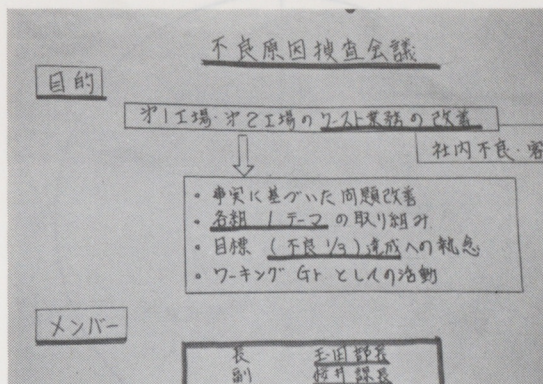 不良原因捜査会議
目的
第1工場・第2工場のワースト業務の改善
社内不良・客
・事実に基づいた問題改善
・各組1テーマの取り組み
・目標(不良1/3)達成への執念
・ワーキングGrとしての活動
メンバー
長 玉田部長
副 桜井課長